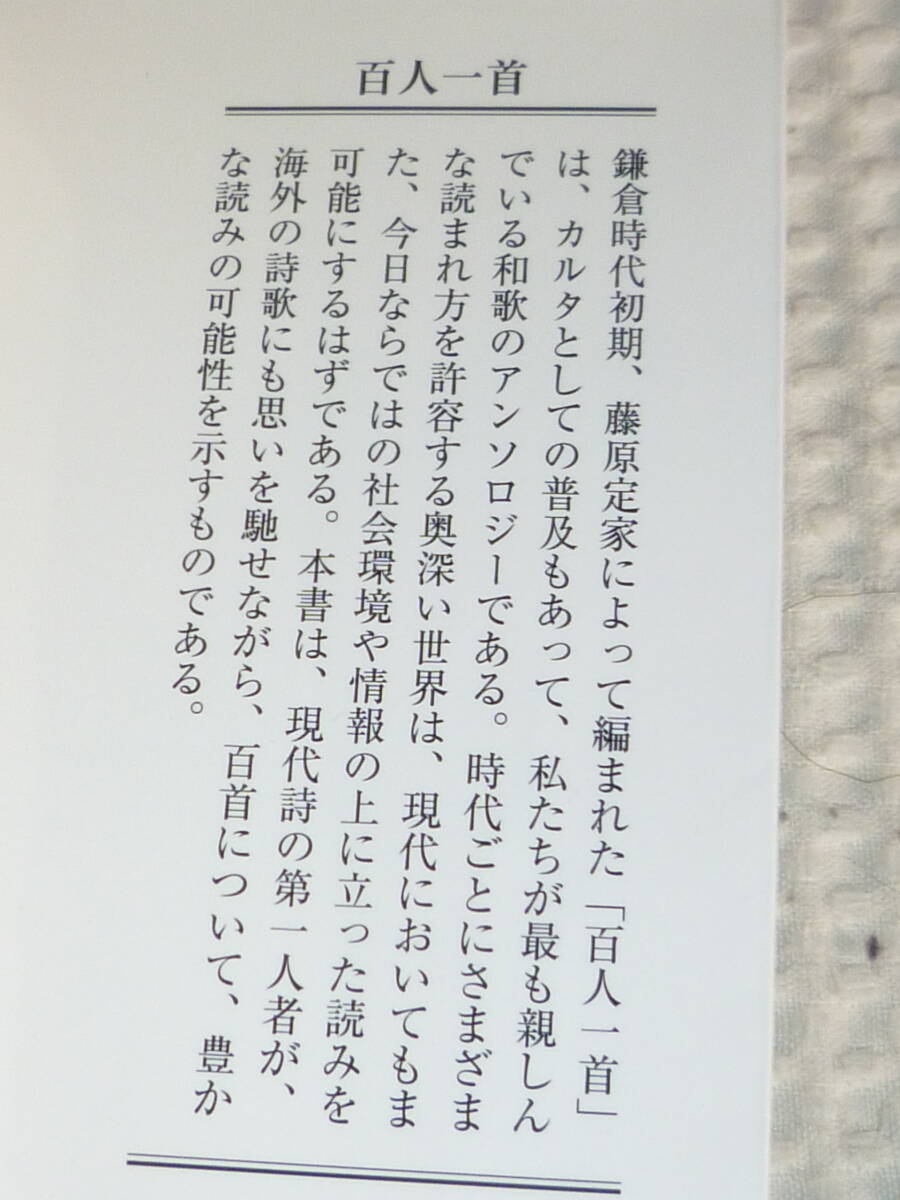 百人一首
鎌倉時代初期、藤原定家によって編まれた「百人一首」
は、カルタとしての普及もあって、私たちが最も親しん
でいる和歌のアンソロジーである。時代ごとにさまざま
な読まれ方を許容する奥深い世界は、現代においてもま
た、今日ならではの社会環境や情報の上に立った読みを
可能にするはずである。本書は、現代詩の第一人者が、
海外の詩歌にも思いを馳せながら、百首について、豊か
な読みの可能性を示すものである。